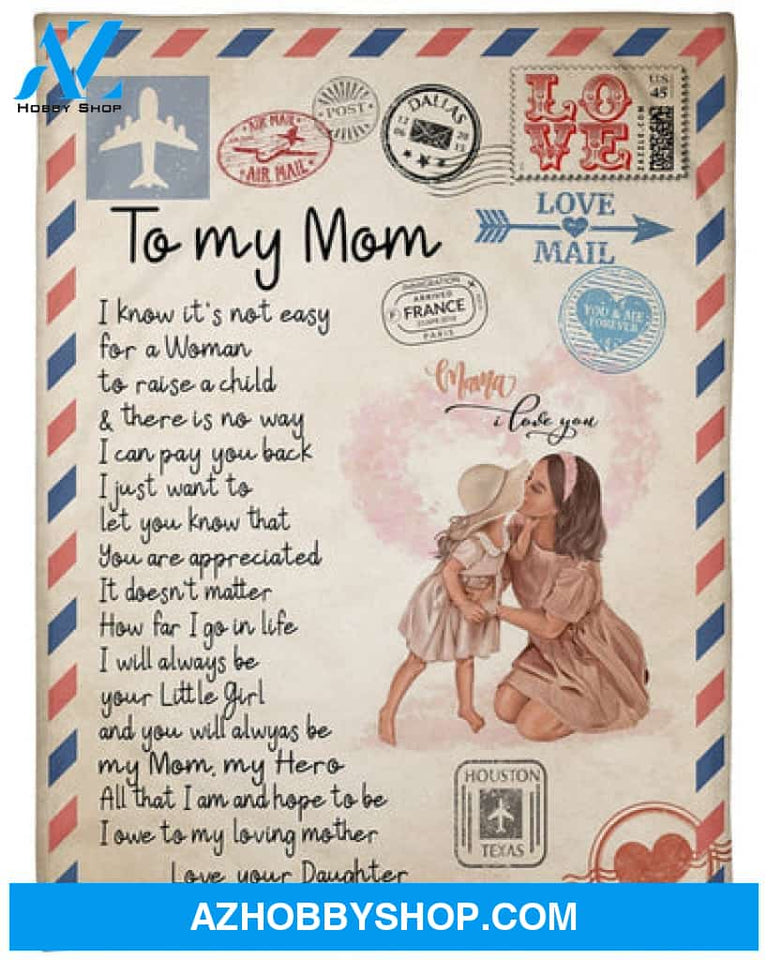 AZ
HOBBY SHOP
POST
AIR MAIL
AIR MAIL
DALLAS
LOVE
US
45
ZAZZLE.COM
To my Mom
LOVE
MAIL
IMMIGRATION
ARRIVED
F FRANCE
PARIS
YOU & ME
FOREVER
I know it's not easy
for a Woman
to raise a child
& there is no way
I can pay you back
I just want to
let you know that
You are appreciated
It doesn't matter
How far I go in life
I will always be
your Little Girl
and you will alwyas be
my Mom, my Hero
All that I am and hope to be
I owe to my loving mother
Love, your Daughter
Mama
i love you
HOUSTON
TEXAS
AZHOBBYSHOP.COM